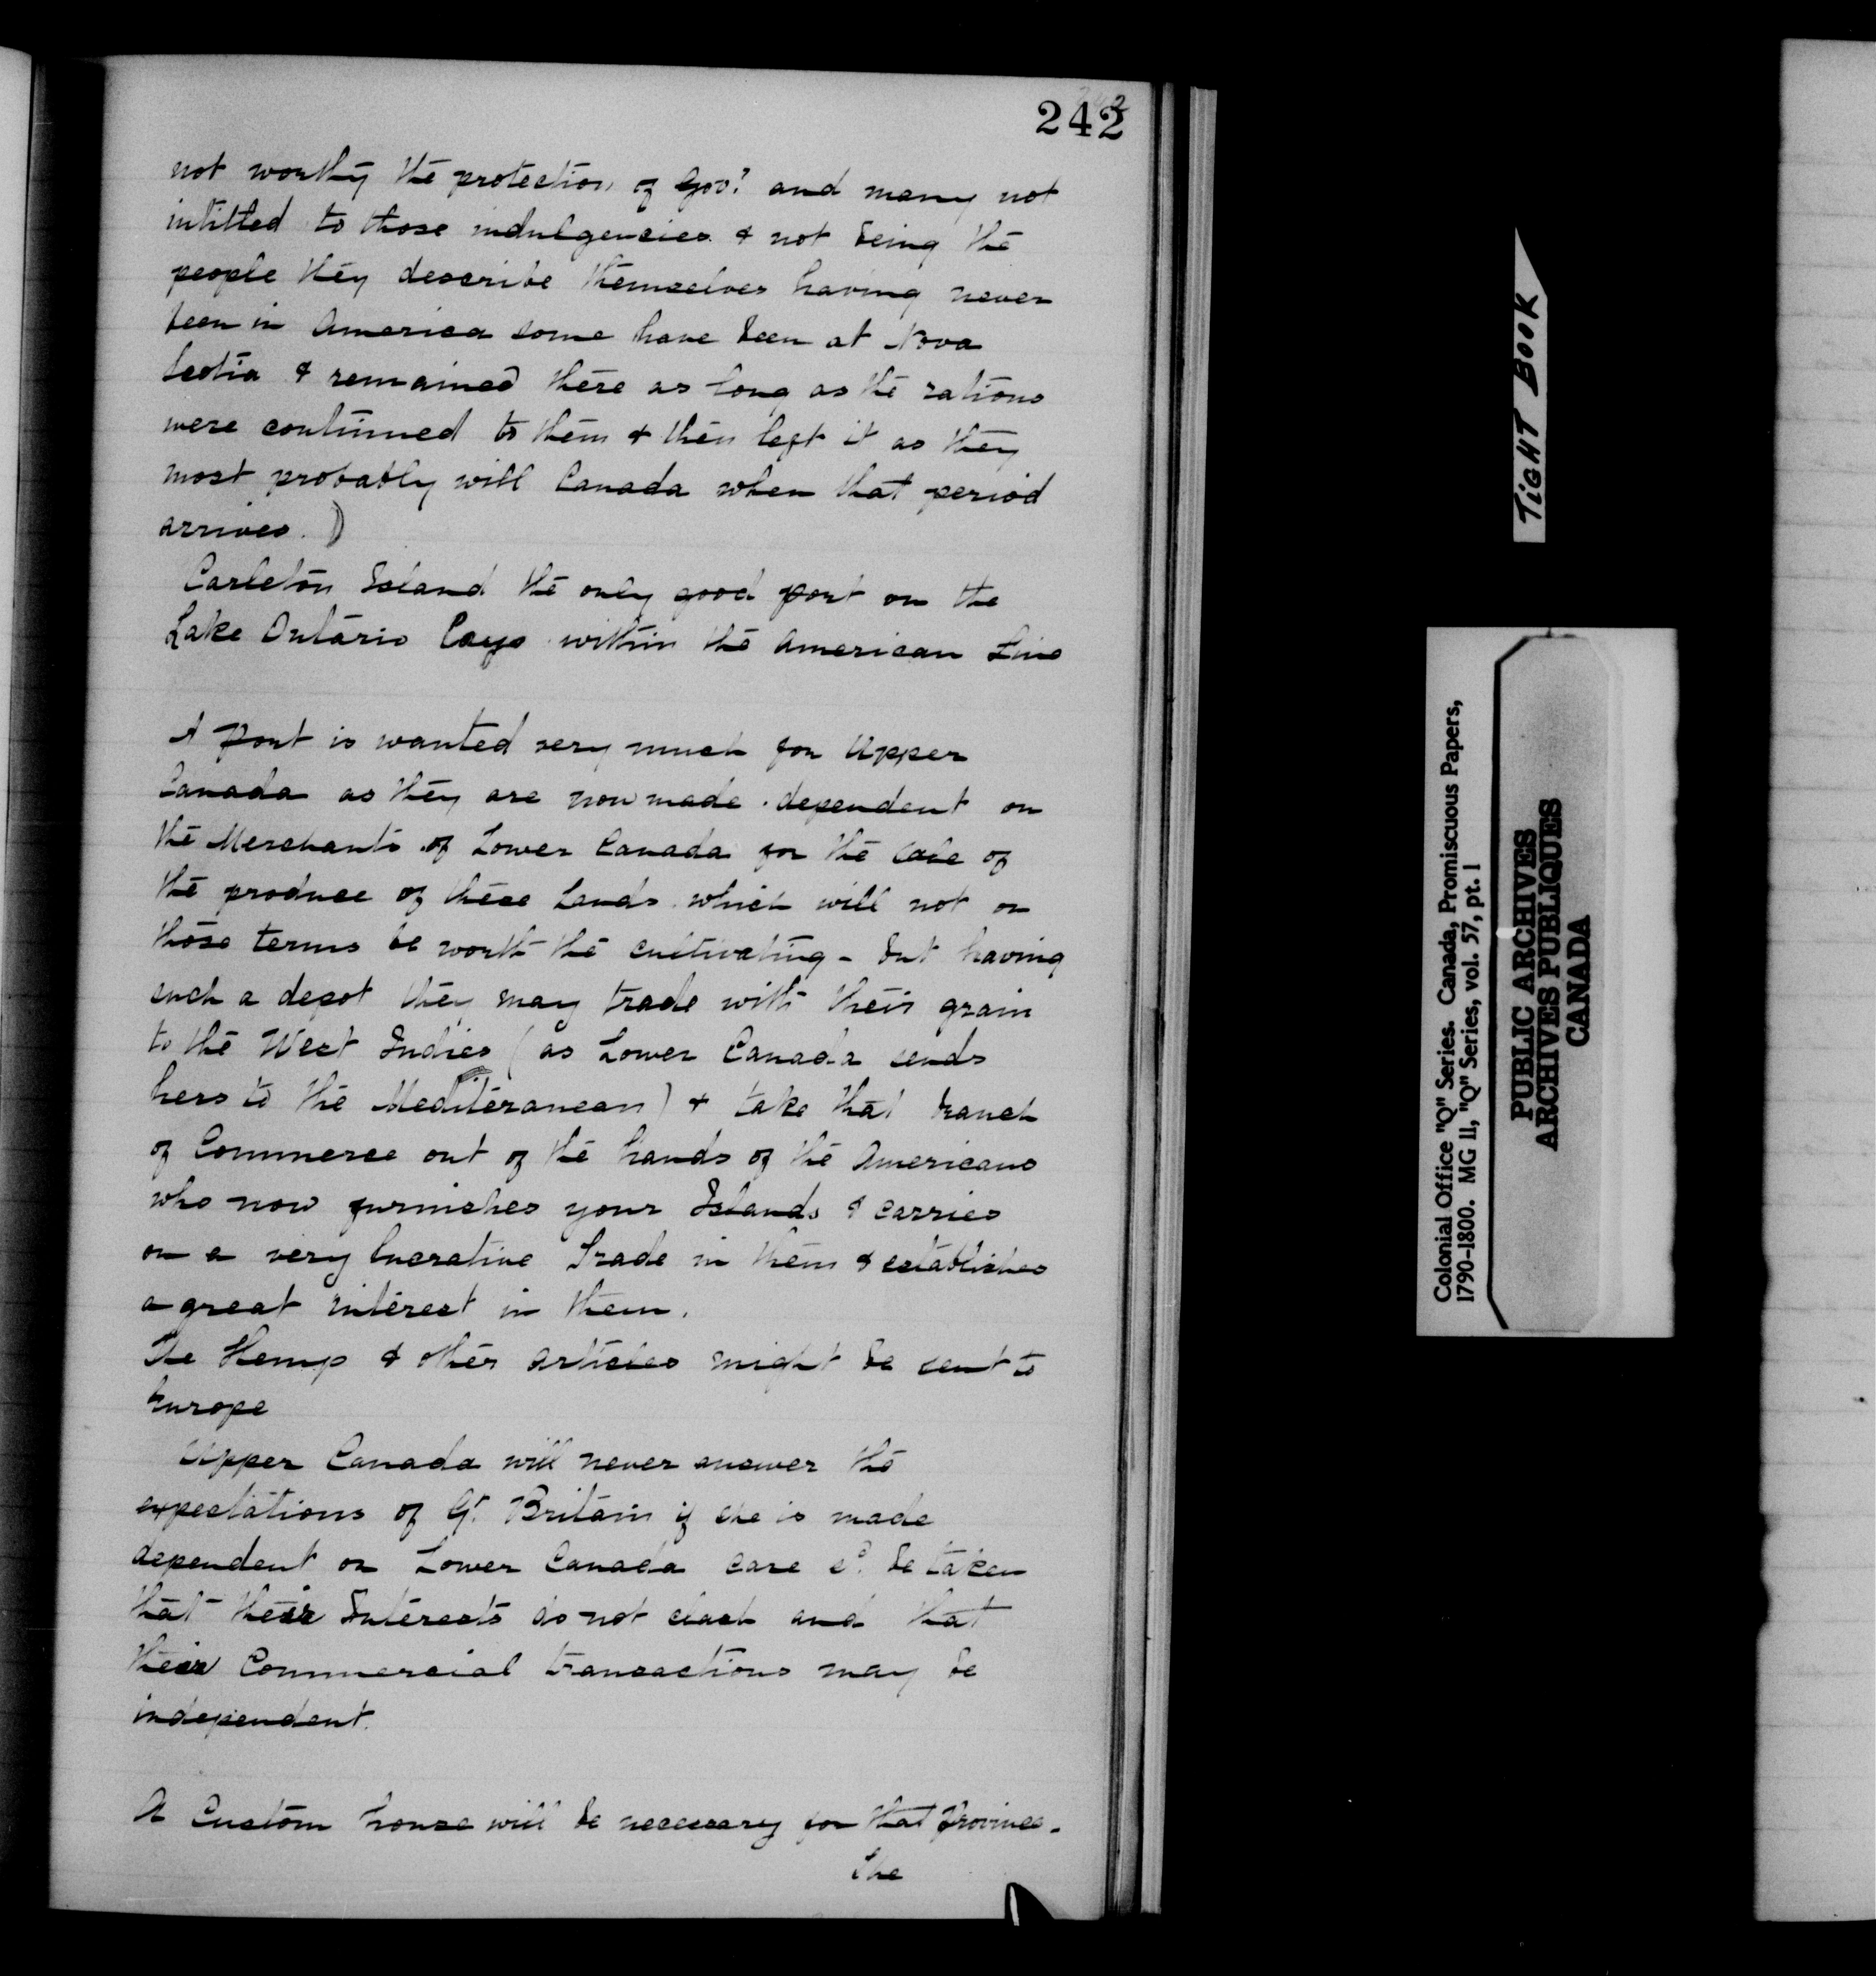 242
not worthy the protection of Govt and many not
intitled to those indulgencies & not being the
people they describe themselves having never
been in America some have been at Nova
Scotia & remained there as long as the rations
were continued to them & then left it as they
most probably will Canada when that period
arrives.)
Carleton Island the only good port on the
Lake Ontario Lays within the American Line
A Port is wanted very much for Upper
Canada as they are now made dependent on
the Merchants of Lower Canada for the sale of
the produce of these Lands which will not on
those terms be worth the cultivating - but having
such a depot they may trade with their grain
to the West Indies (as Lower Canada sends
hers to the Mediteranean) & take that branch
of Commerce out of the hands of the Americans
who now furnishes your Islands & carries
on a very lucrative Trade in them & establishes
a great interest in them.
The Hemp & other articles might be sent to
Europe
Upper Canada will never answer the
expectations of Gt. Britain if she is made
dependent on Lower Canada care sd. be taken
that their Interests do not clash and that
their Commercial transactions may be
independent.
A Custom house will be necessary for that Province.
The
TIGHT BOOK
Colonial Office "Q" Series. Canada, Promiscuous Papers,
1790-1800. MG 11, "Q" Series, vol. 57, pt. 1
PUBLIC ARCHIVES
ARCHIVES PUBLIQUES
CANADA